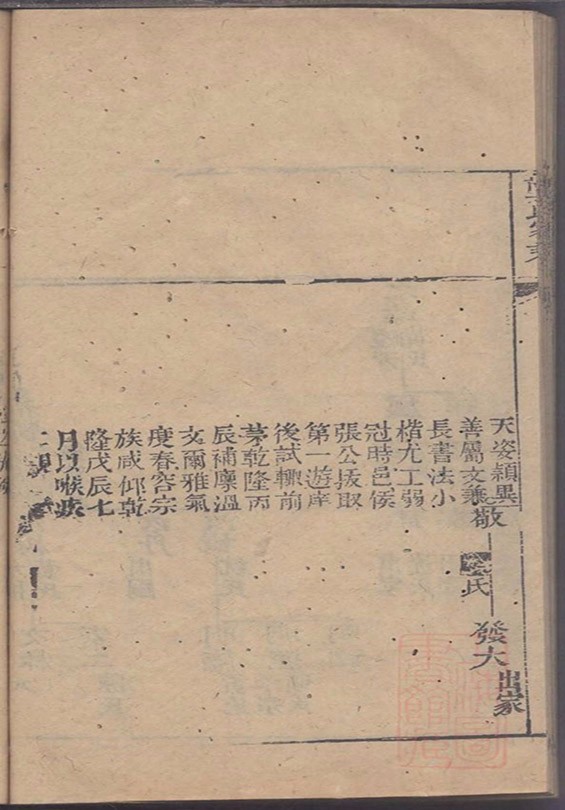 天姿頴異
善屬文兼
長書法小
楷尤工弱
冠時邑侯
張公拔取
第一遊庠
後試輙前
茅乾隆丙
辰補廩溫
文爾雅氣
度春容宗
族咸仰乾
隆戊辰七
月以喉疾
敬
氏
發大
出家